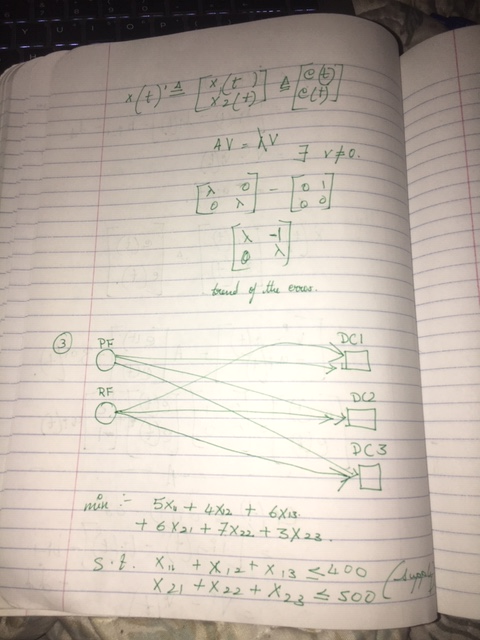 x(t) ≜ [x₁(t) x₂(t)] ≜ [e(t) ė(t)]
AV = λV
∃ v≠0.
[λ 0 0 λ] - [0 1 0 0]
[λ -1 0 λ]
trend of the
③ PF DC1
RF DC2
DC3
min :- 5X₁₁ + 4X₁₂ + 6X₁₃
+ 6X₂₁ + 7X₂₂ + 3X₂₃.
s.t. X₁₁ + X₁₂ + X₁₃ ≤ 400 (supply)
X₂₁ + X₂₂ + X₂₃ ≤ 500